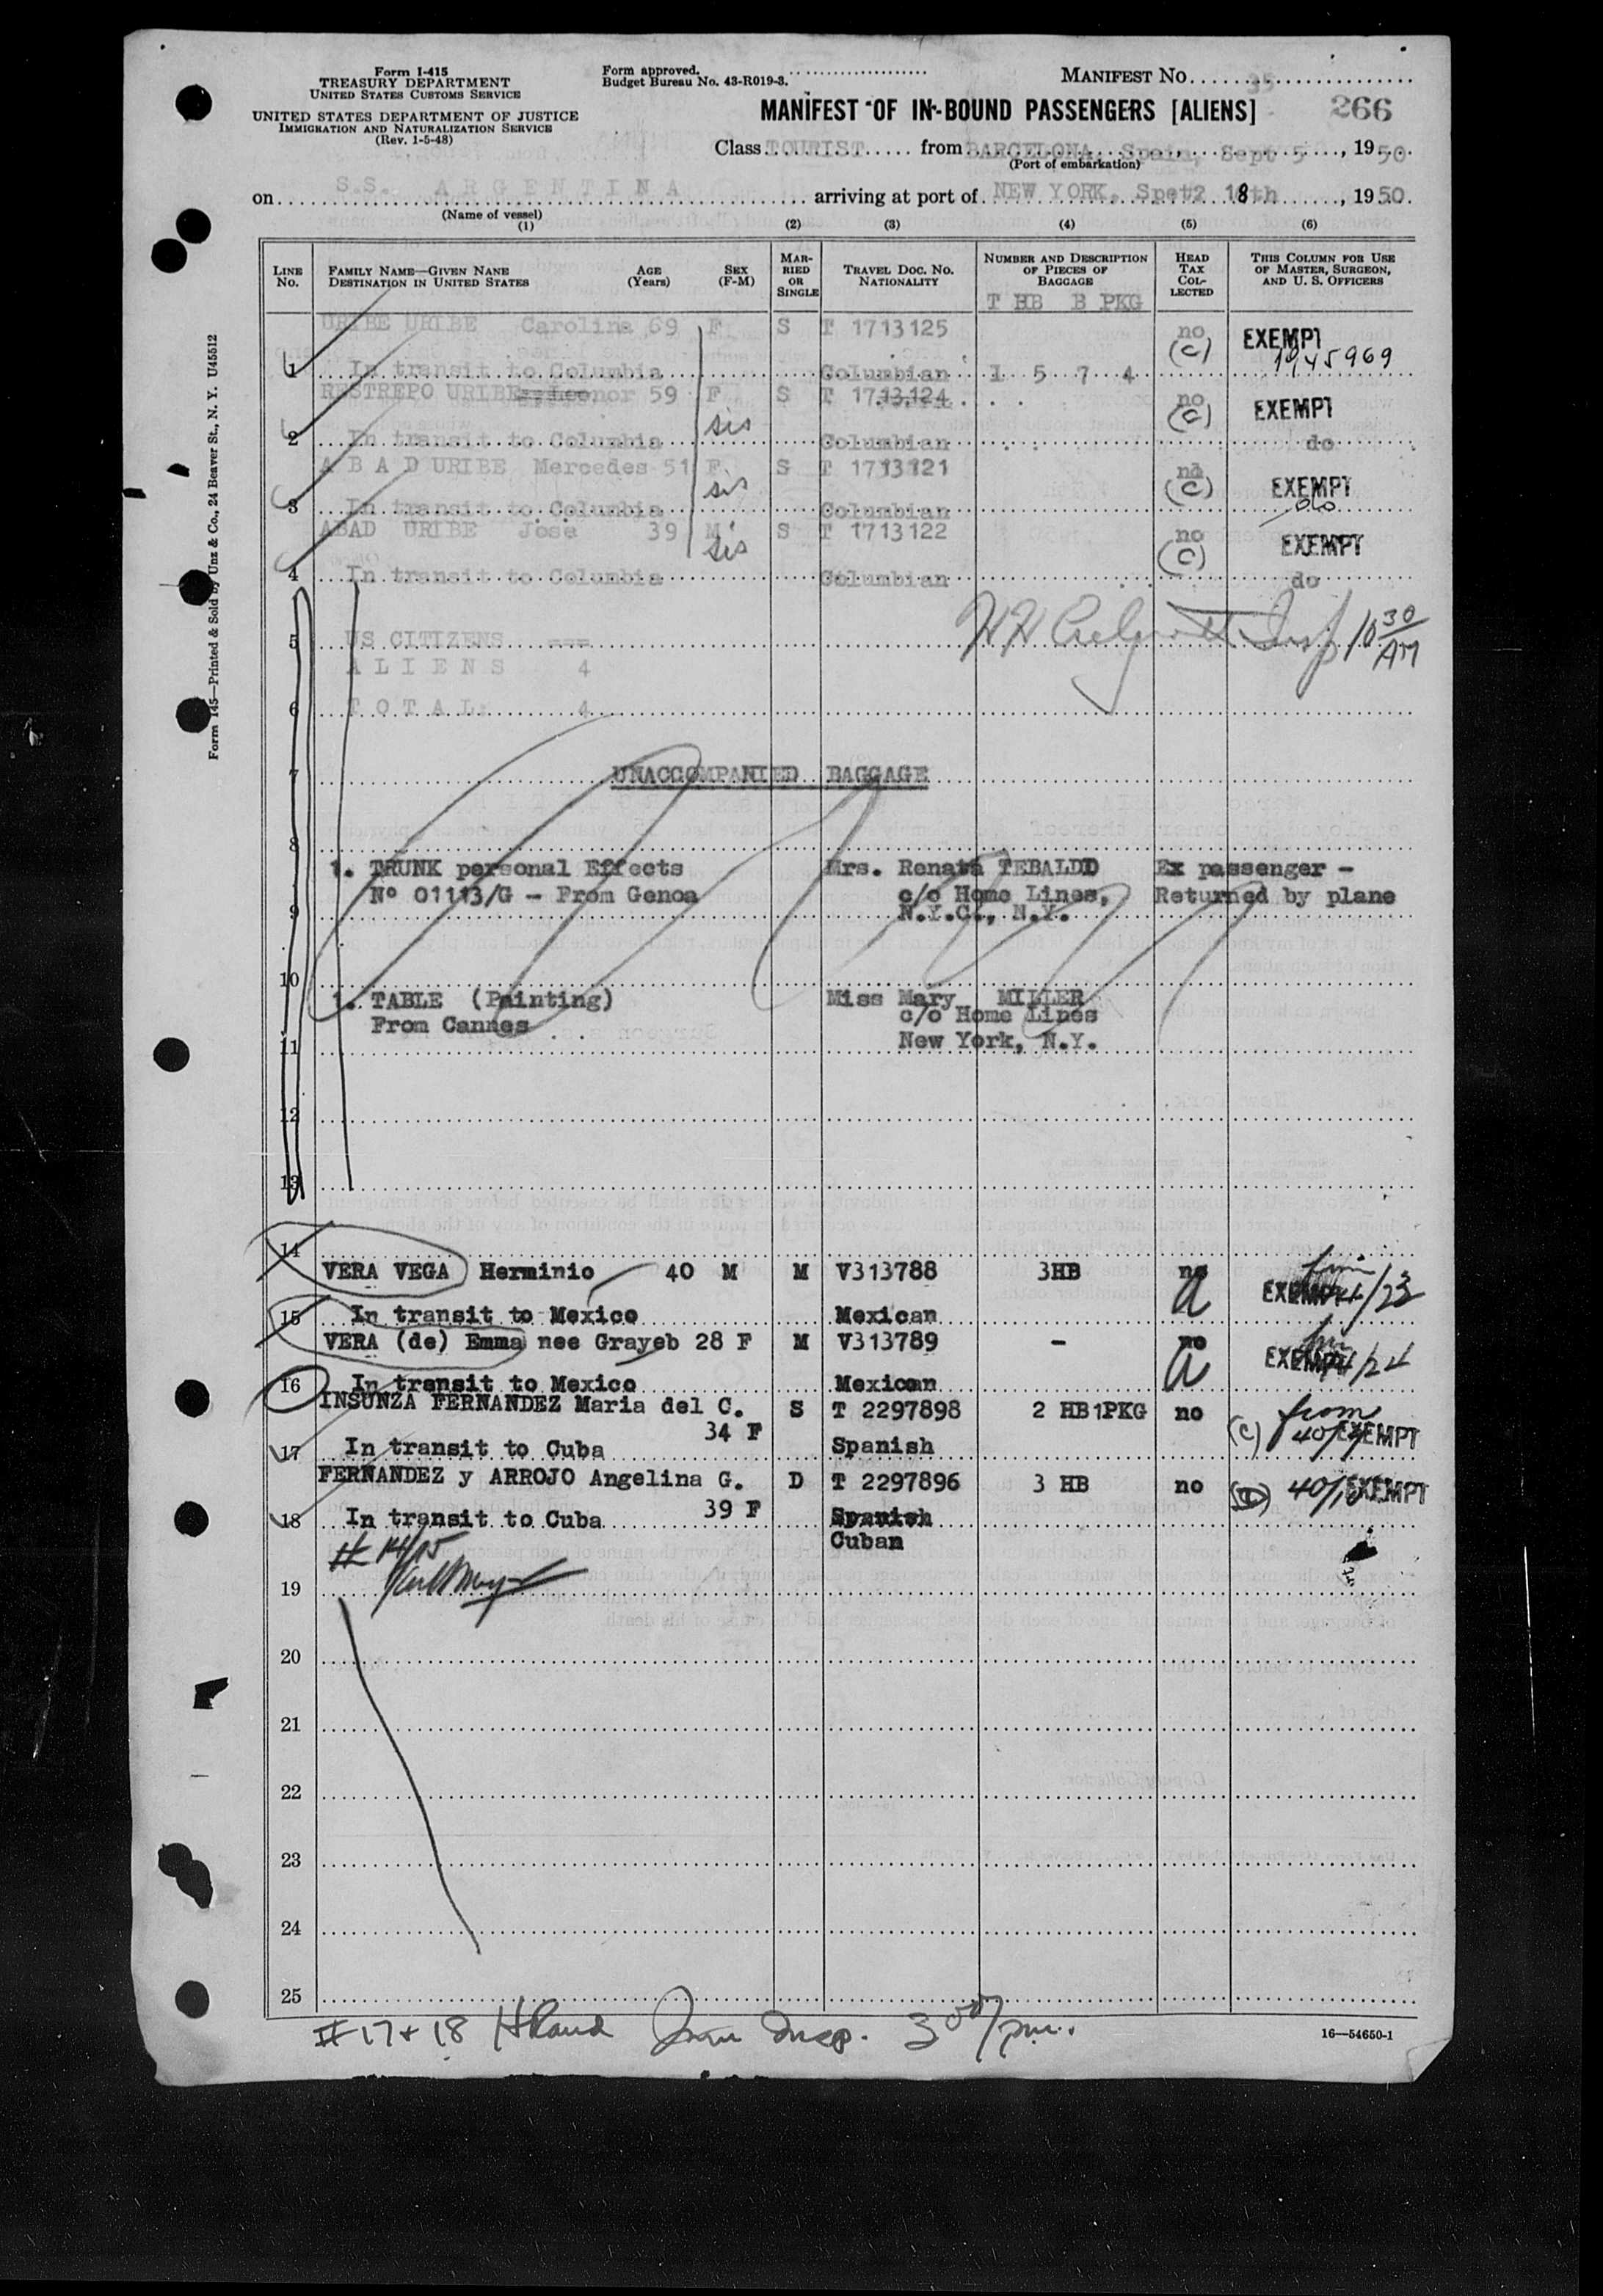 Form I-415
TREASURY DEPARTMENT
UNITED STATES CUSTOMS SERVICE
UNITED STATES DEPARTMENT OF JUSTICE
IMMIGRATION AND NATURALIZATION SERVICE
(Rev. 1-5-48)
Form approved.
Budget Bureau No. 43-R019-3.
MANIFEST NO. 35
MANIFEST OF IN-BOUND PASSENGERS [ALIENS] 266
Class TOURIST from BARCELONA, Spain, Sept 5, 1950
(Port of embarkation)
on S.S. ARGENTINA arriving at port of NEW YORK, 18th, 1950
(Name of vessel)
(1) (2) (3) (4) (5) (6)
LINE NO.
FAMILY NAME—GIVEN NANE
DESTINATION IN UNITED STATES
AGE (Years)
SEX (F-M)
MARRIED OR SINGLE
TRAVEL DOC. NO. NATIONALITY
NUMBER AND DESCRIPTION OF PIECES OF BAGGAGE
T HB B PKG
HEAD TAX COLLECTED
THIS COLUMN FOR USE OF MASTER, SURGEON, AND U. S. OFFICERS
URIBE URIBE Carolina 69 F S T 1713125 no EXEMPT
1 In transit to Columbia Columbian 1 5 7 4 (C) 1945969
RESTREPO URIBE Leonor 59 F S T 1713124 no (C) EXEMPT
2 In transit to Columbia sis Columbian do
ABAD URIBE Mercedes 51 F S T 1713121 no (C) EXEMPT
3 In transit to Columbia sis Columbian do
ABAD URIBE Jose 39 M S T 1713122 no (C) EXEMPT
4 In transit to Columbia sis Columbian do
5 US CITIZENS ===
10 30 AM
ALIENS 4
6 TOTAL: 4
7 UNACCOMPANIED BAGGAGE
8
1. TRUNK personal Effects Mrs. Renata TEBALDI Ex passenger -
Nº 01113/G - From Genoa c/o Home Lines, Returned by plane
9 N.Y.C., N.Y.
10
1. TABLE (Painting) Miss Mary MILLER
From Cannes c/o Home Lines
11 New York, N.Y.
12
13
14
VERA VEGA Herminio 40 M M V313788 3HB no EXEMPT
15 In transit to Mexico Mexican
VERA (de) Emma nee Grayeb 28 F M V313789 - no EXEMPT
16 In transit to Mexico Mexican
INSUNZA FERNANDEZ Maria del C. S T 2297898 2 HB 1PKG no (C) from EXEMPT
34 F
17 In transit to Cuba Spanish
FERNANDEZ y ARROJO Angelina G. D T 2297896 3 HB no EXEMPT
39 F
18 In transit to Cuba Spanish
Cuban
# 14/15
19
20
21
22
23
24
25
#17+18 Insp. 3 00/pm.
16—54650-1
Form 145—Printed & Sold by Unz & Co., 24 Beaver St., N. Y. U45512